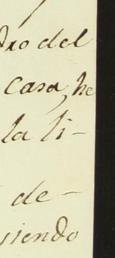 dro del
casa, he
la li-
de-
siendo